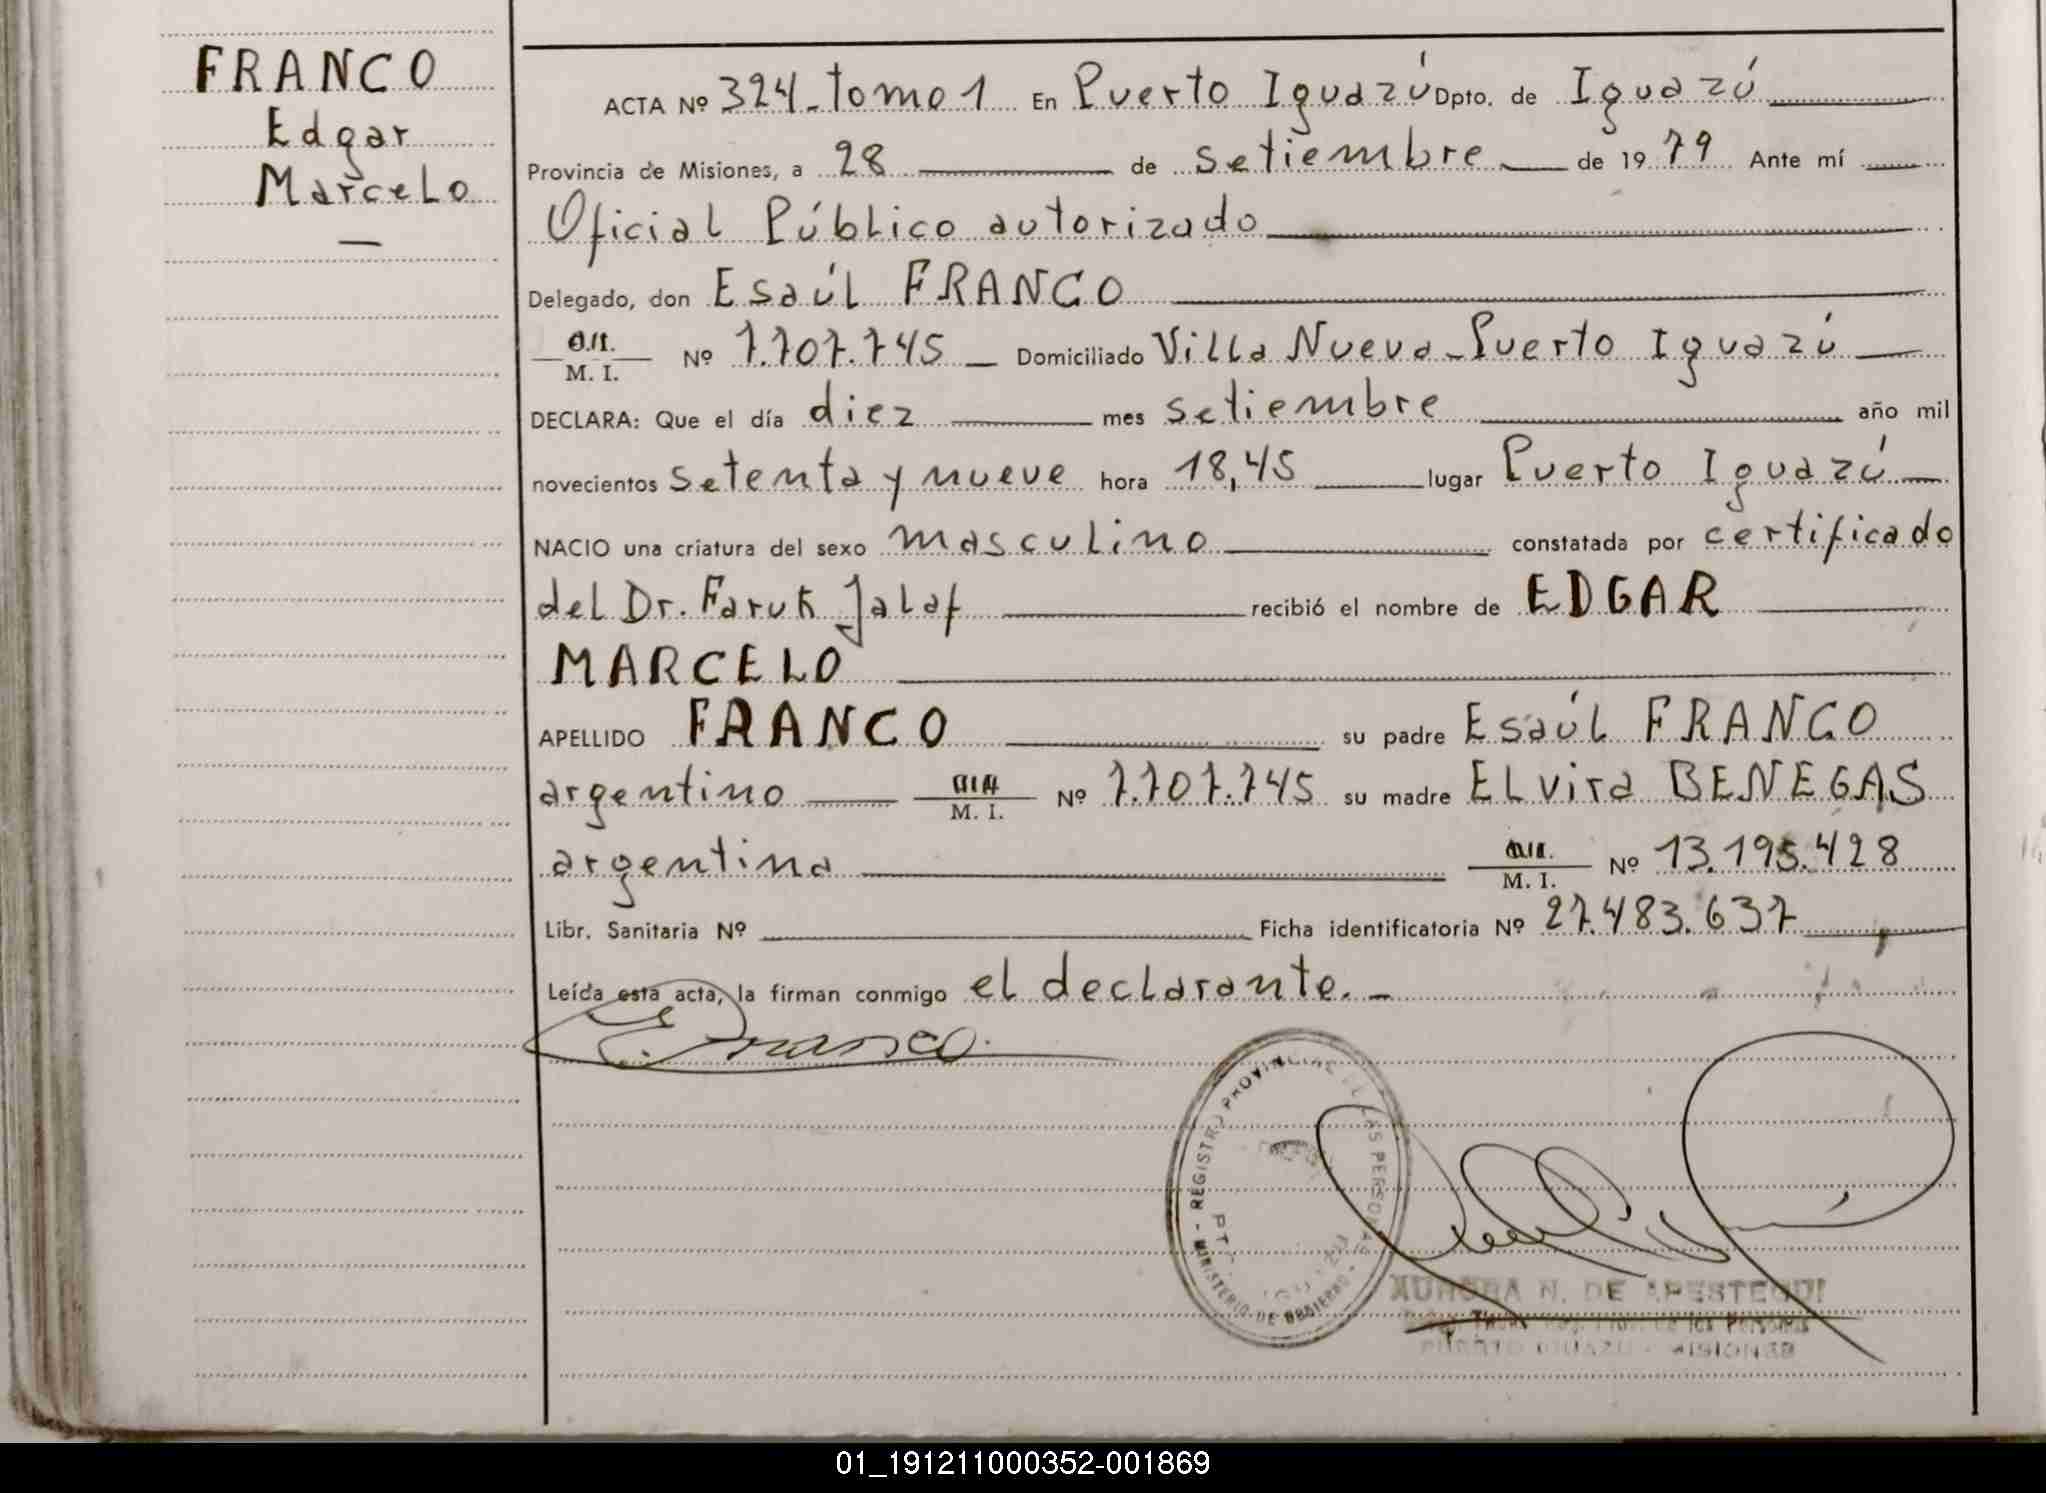 FRANCO
Edgar
Marcelo
ACTA Nº 324-tomo 1 En Puerto Iguazú Dpto. de Iguazú
Provincia de Misiones, a 28 de setiembre de 1979 Ante mí
Oficial Público autorizado
Delegado, don Esaúl FRANCO
M. I. Nº 7.707.745 Domiciliado Villa Nueva-Puerto Iguazú
DECLARA: Que el día diez mes setiembre año mil
novecientos setenta y nueve hora 18,45 lugar Puerto Iguazú
NACIO una criatura del sexo masculino constatada por certificado
del Dr. Faruk Jalaf recibió el nombre de EDGAR
MARCELO
APELLIDO FRANCO su padre Esaúl FRANCO
argentino M. I. Nº 7.707.745 su madre ELvira BENEGAS
argentina M. I. Nº 13.195.428
Libr. Sanitaria Nº Ficha identificatoria Nº 27.483.637
Leída esta acta, la firman conmigo el declarante.-
E. Franco
REGISTRO PROVINCIAL DE LAS PERSONAS
MINISTERIO DE GOBIERNO
AURORA N. DE APESTEGUI
PUERTO IGUAZU - MISIONES
01_191211000352-001869